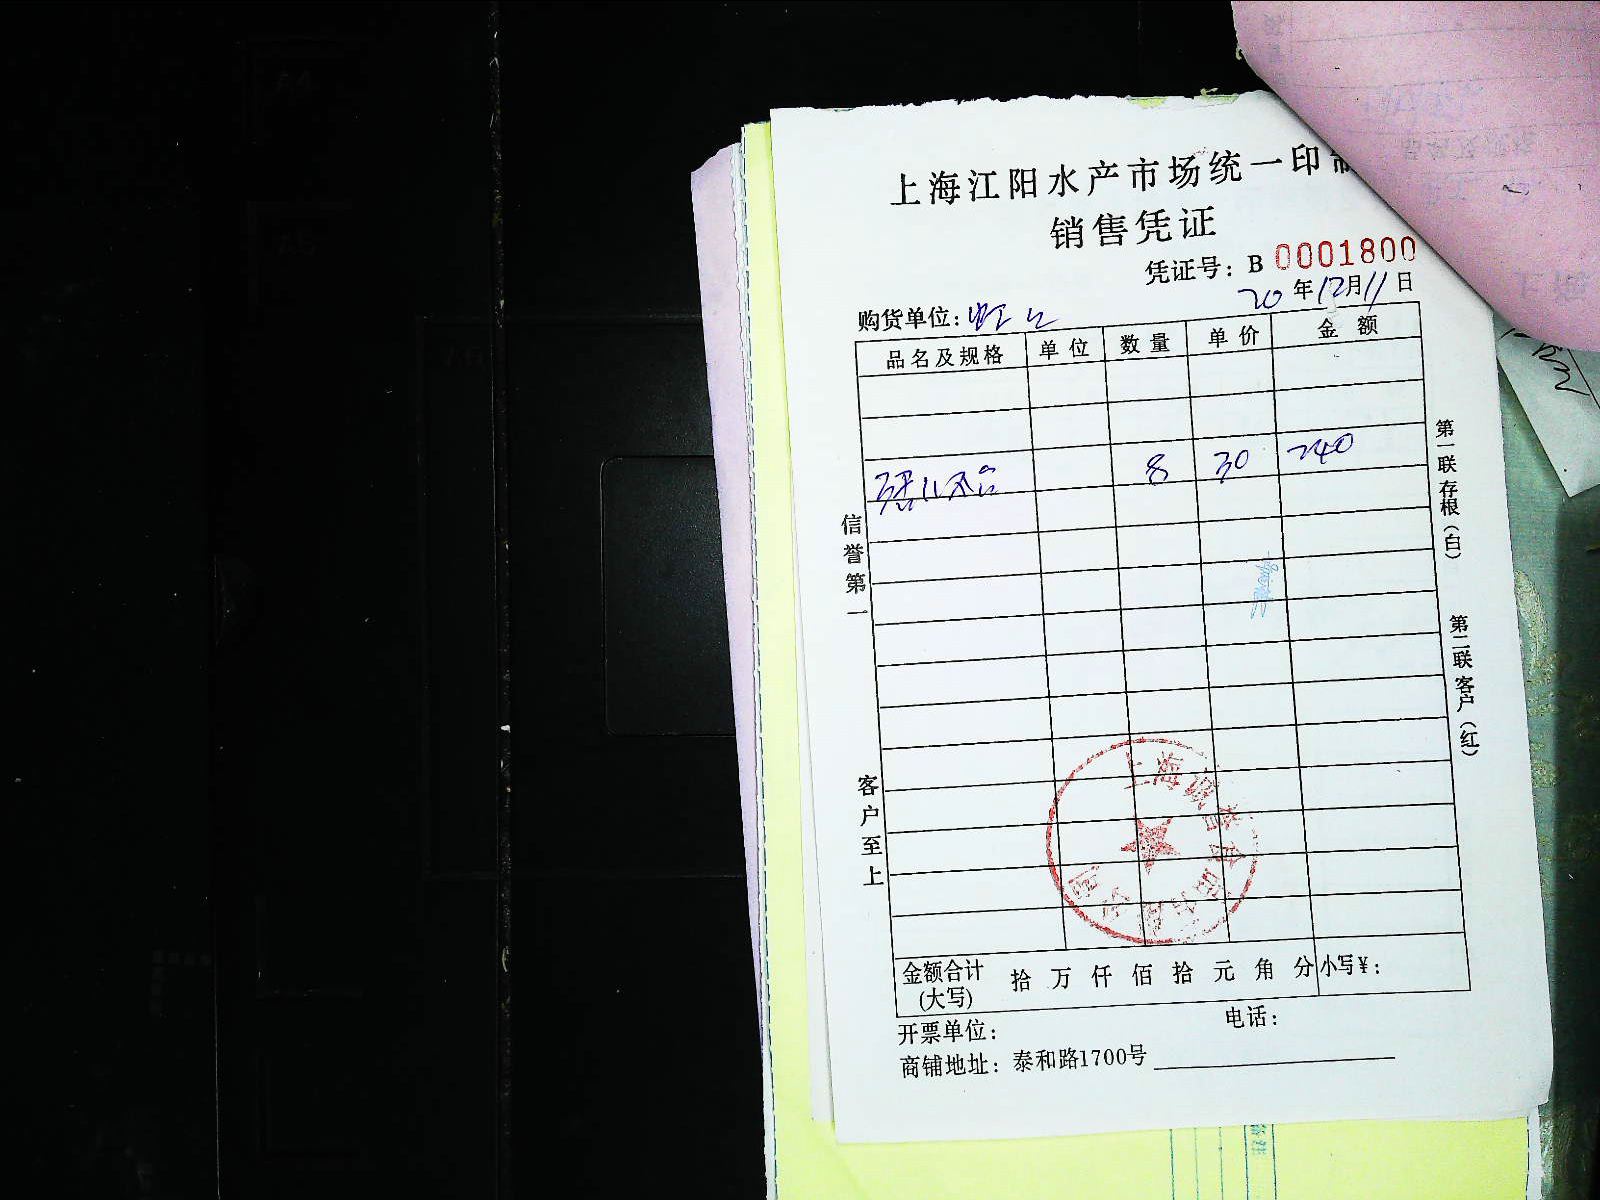 上海江阳水产市场统一印制
销售凭证
凭证号：B 0001800
20 年 12 月 11 日
购货单位：虹江
品名及规格 单位 数量 单价 金额
8 30 240
信誉第一
客户至上
第一联存根（白）
第二联客户（红）
上海
公司
金额合计（大写） 拾 万 仟 佰 拾 元 角 分 小写￥：
开票单位： 电话：
商铺地址：泰和路1700号